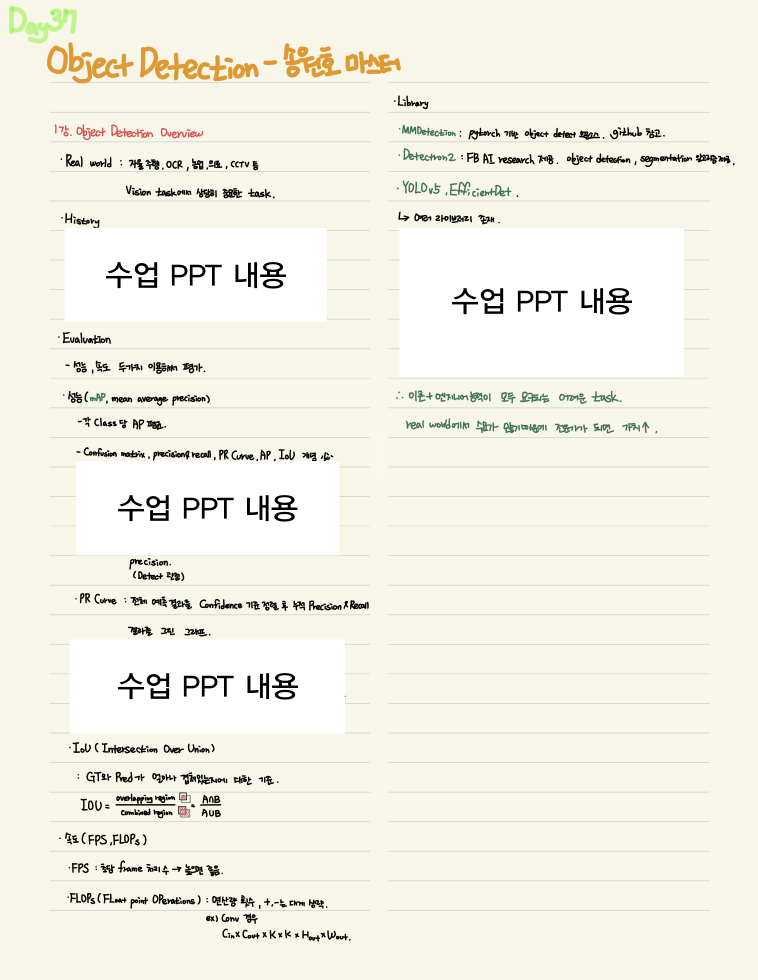 Day37
Object Detection - 송원호 마스터
1강. Object Detection Overview
·Real world : 자율주행, OCR, 농업, 의료, CCTV 등
Vision task에서 상당히 중요한 task.
·History
수업 PPT 내용
·Evaluation
- 성능, 속도 두가지 이용해서 평가.
·성능(mAP, mean average precision)
-각 Class당 AP 평균.
- Confusion matrix, precision&recall, PR Curve, AP, IoU 개념
수업 PPT 내용
precision.
(Detect 관점)
·PR Curve : 전체 예측결과를 Confidence 기준 정렬 후 누적 Precision & Recall
결과를 그린 그래프.
수업 PPT 내용
·IoU (Intersection Over Union)
: GT와 Pred가 얼마나 겹쳐있는지에 대한 기준.
IOU = overlapping region / combined region = A∩B / A∪B
·속도(FPS, FLOPs)
·FPS : 초당 frame 처리 수 → 높으면 좋음.
·FLOPs (FLoat point OPerations) : 연산량 횟수, +,-는 대게 생략.
ex) Conv 경우
Cin x Cout x K x K x Hout x Wout.
·Library
·MMDetection : pytorch 기반 object detect 오픈소스. github 참고.
·Detectron2 : FB AI research 제공. object detection, segmentation 알고리즘 제공.
·YOLOv5, EfficientDet.
↳ 여러 라이브러리 존재.
수업 PPT 내용
∴ 이론+엔지니어능력이 모두 요구되는 어려운 task.
real world에서 수요가 많기때문에 전문가가 되면 가치↑.